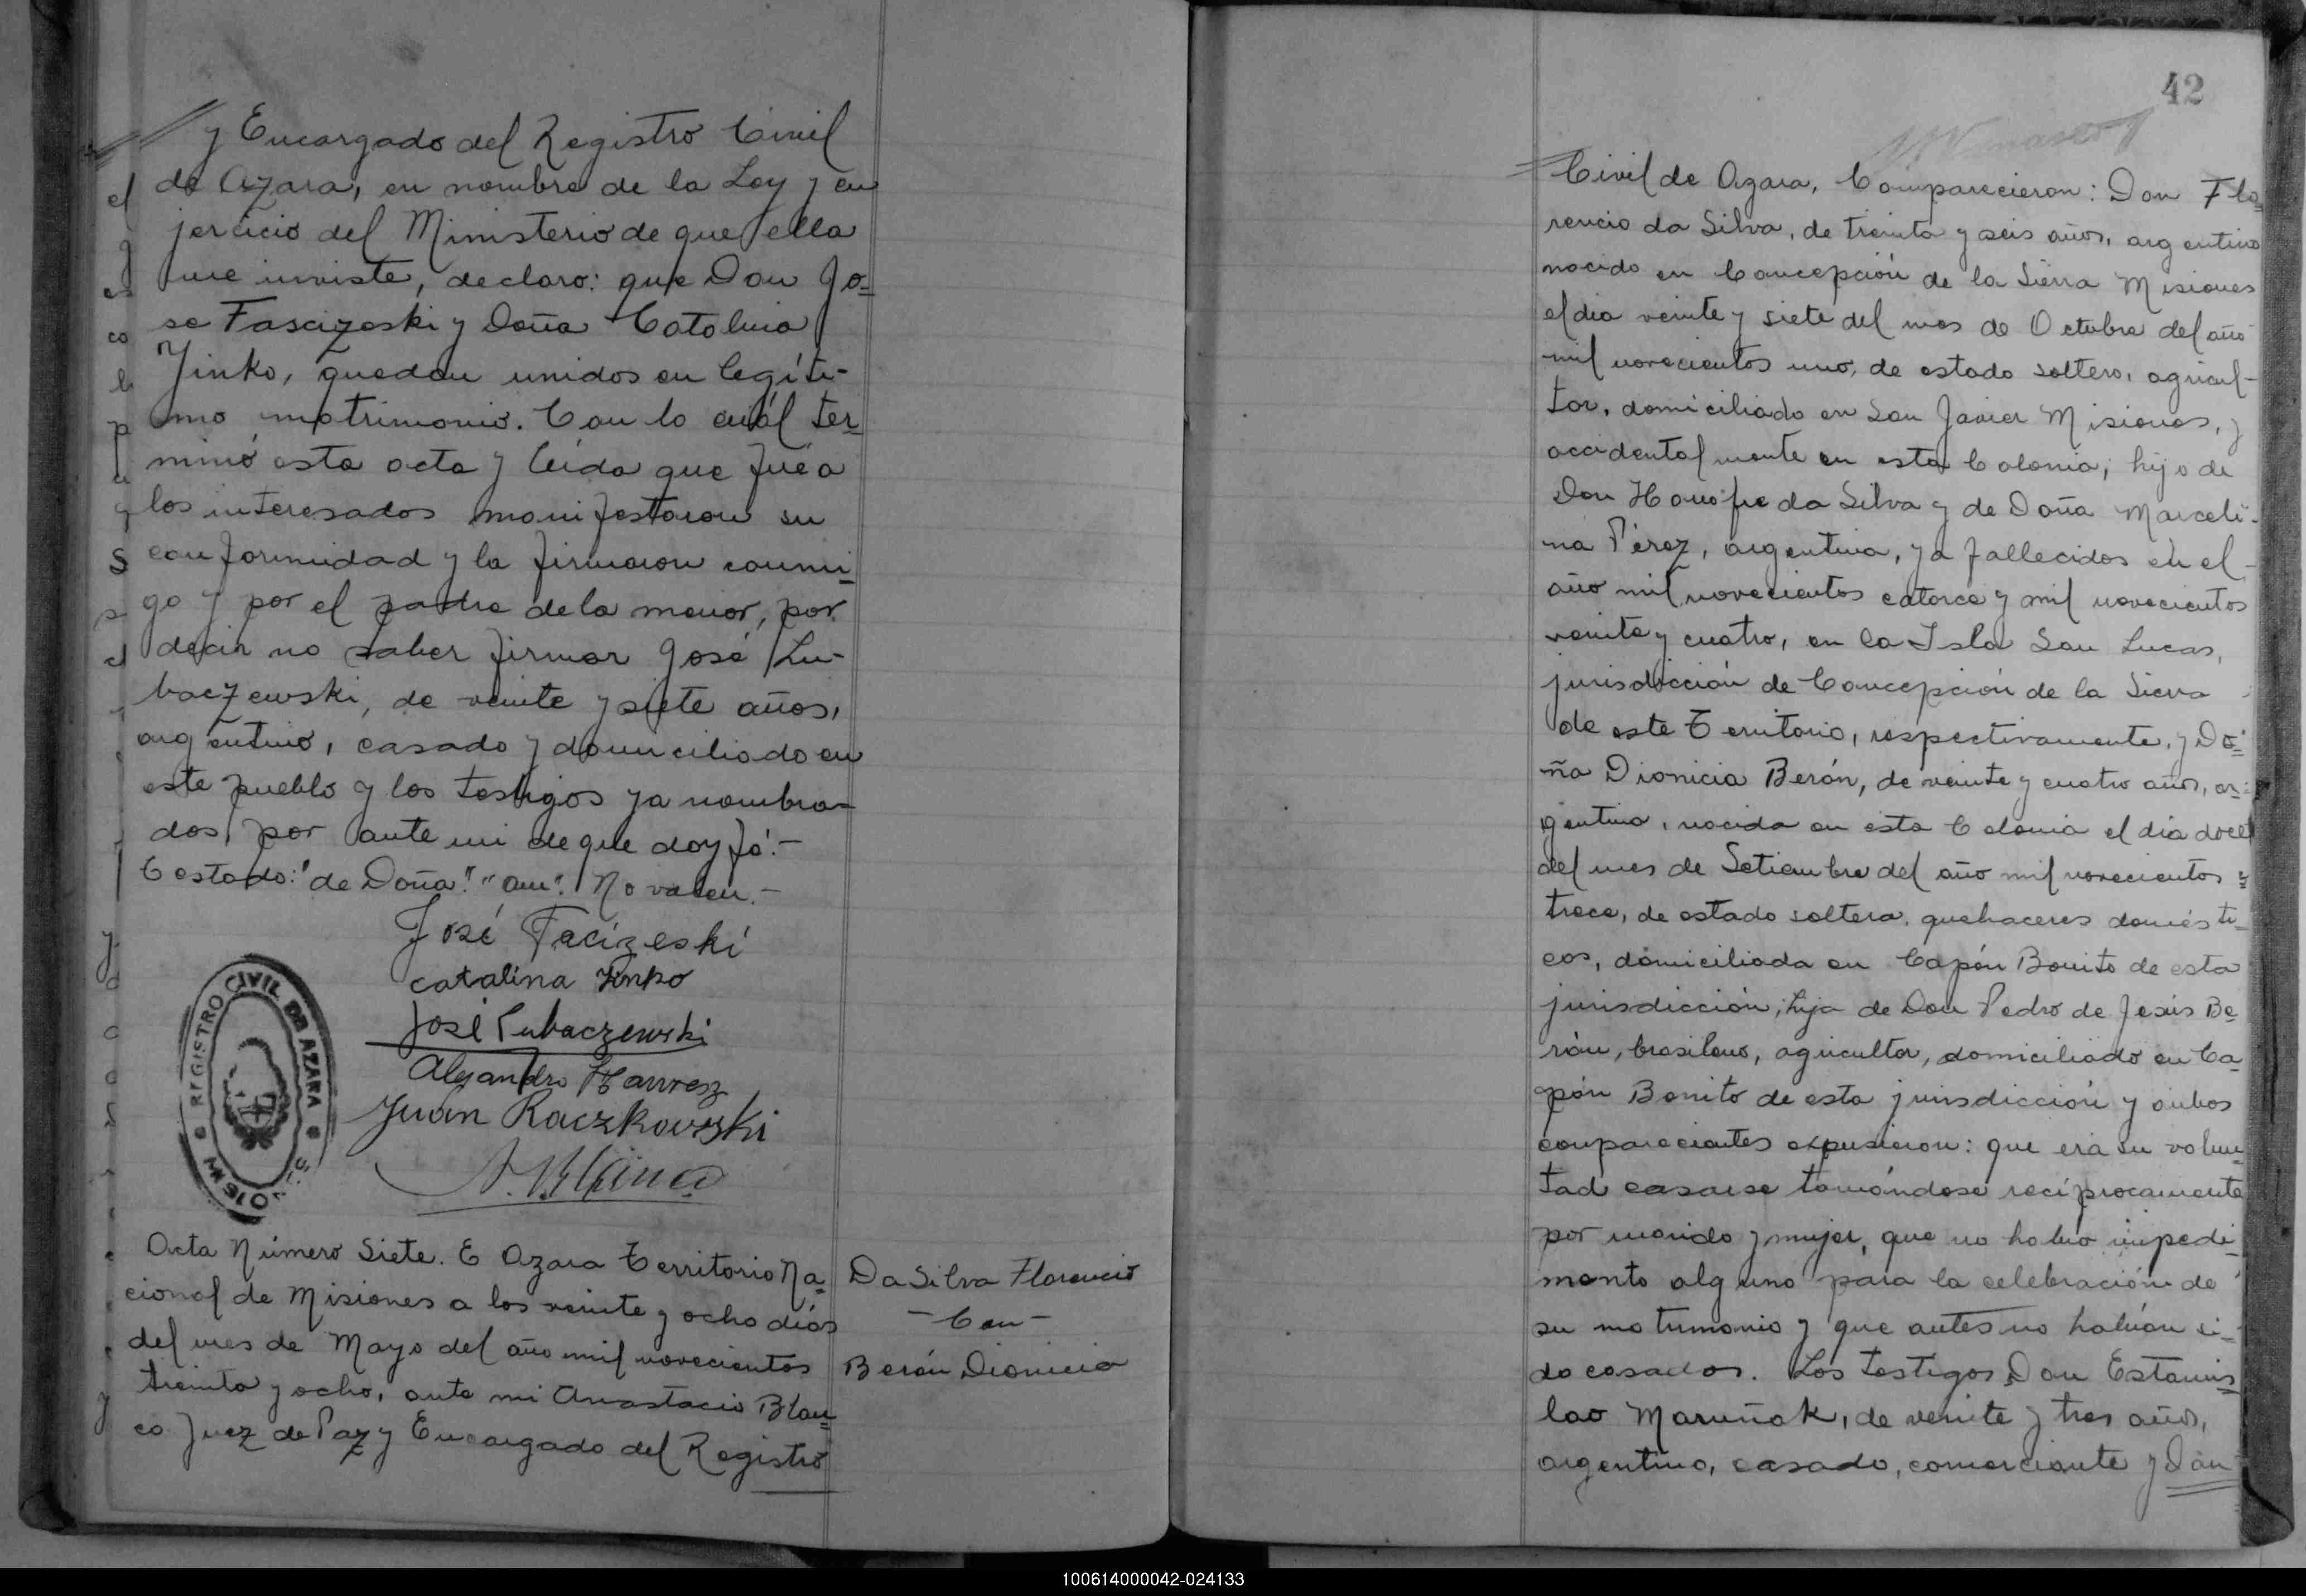 y Encargado del Registro Civil
de Azara, en nombre de la Ley y en
jercicio del Ministerio de que ella
me inviste, declaro: que Don Jo=
se Fascizeski y Doña Catalina
Yinko, quedan unidos en legíti-
mo matrimonio. Con lo cuál ter=
minó esta acta y leída que fué a
los interesados manifestaron su
conformidad y la firmaron conmi=
go y por el padre de la menor, por
decir no saber firmar José Lu-
baczewski, de veinte y siete años,
argentino, casado y domiciliado en
este pueblo y los testigos ya nombra-
dos, por ante mi de que doy fé.-
Testado: "de Doña". "am". No valen.-
José Facizeski
catalina Yinko
José Lubaczewski
Alejandro
Juan Raczkowski
A. Blanco
REGISTRO CIVIL DE AZARA
Acta Número Siete. E Azara Territorio Na=
cional de Misiones a los veinte y ocho días
del mes de Mayo del año mil novecientos
treinta y ocho, ante mi Anastacio Blan=
co Juez de Paz y Encargado del Registro
Da Silva Florencio
- Con -
Berón Dionicia
42
Civil de Azara, Comparecieron: Don Flo=
rencio da Silva, de treinta y seis años, argentino
nacido en Concepción de la Sierra Misiones
el dia veinte y siete del mes de Octubre del año
mil novecientos uno, de estado soltero, agricul-
tor, domiciliado en San Javier Misiones, y
accidentalmente en esta Colonia; hijo de
Don Honofre da Silva y de Doña Marceli-
na Pérez, argentina, ya fallecidos en el
año mil novecientos catorce y mil novecientos
veinte y cuatro, en la Isla San Lucas,
jurisdicción de Concepción de la Sierra
de este Territorio, respectivamente, y Do=
ña Dionicia Berón, de veinte y cuatro años, ar=
gentina, nacida en esta Colonia el día doce
del mes de Setiembre del año mil novecientos
trece, de estado soltera, quehaceres domésti=
cos, domiciliada en Capón Bonito de esta
jurisdicción; hija de Don Pedro de Jesús Be
rón, brasilero, agricultor, domiciliado en Ca=
pón Bonito de esta jurisdicción y ambos
comparecientes expusieron: que era su volun=
tad casarse tomándose recíprocamente
por marido y mujer, que no había impedi=
mento alguno para la celebración de
su matrimonio y que antes no habían si=
do casados. Los testigos Don Estanis=
lao Maruñak, de veinte y tres años,
argentino, casado, comerciante y Don
100614000042-024133